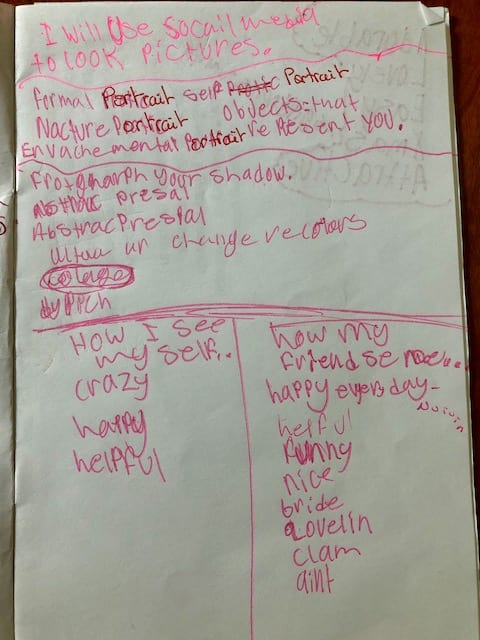 I will Use Socail media
to look Pictures.
formal Portrait self Portrait
Nacture Portrait objects: that
Envachemental Portrait re Resent YOU.
Frotgnarph your shadow.
presal
AbstracPresial
change recolors
colage
How I see
my self..
crazy
happy
helpful
how my
friend se me...
happy every day-
helful
Funny
nice
bride
Lovelin
clam
aint